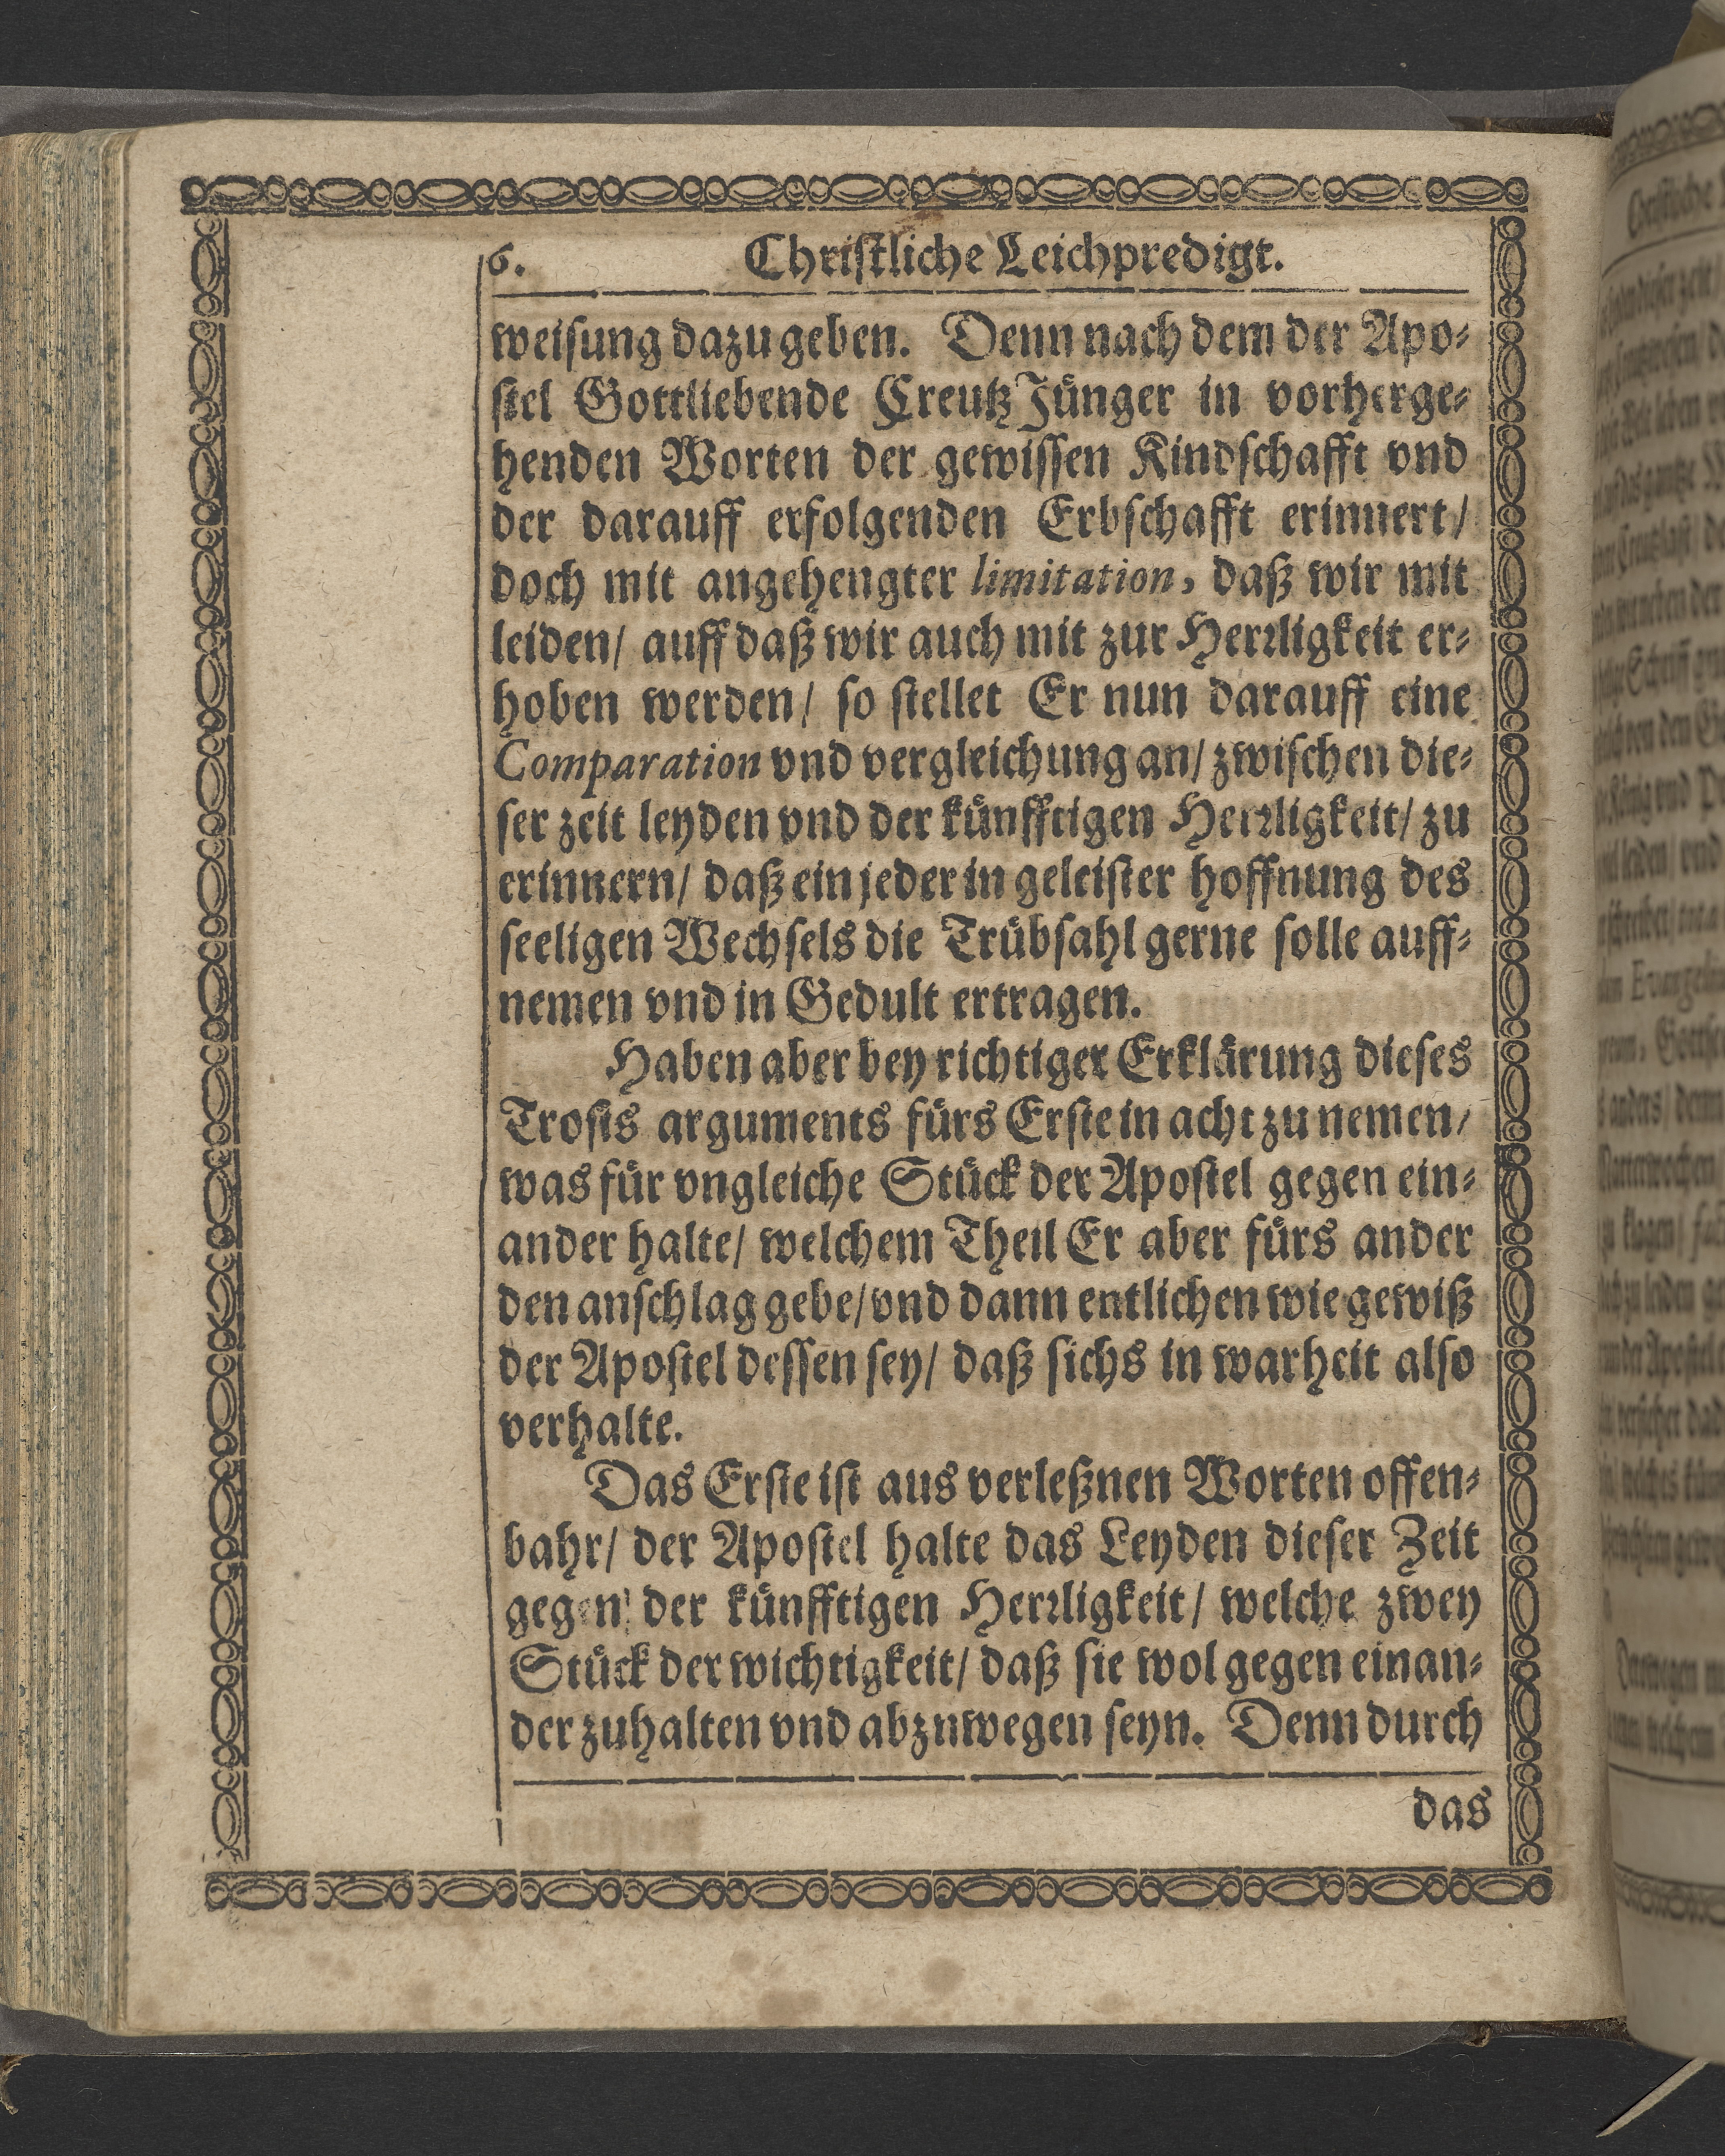 6. Christliche Leichpredigt.
weisung dazu geben. Denn nach dem der Apo-
stel Gottliebende Creutz Jünger in vorherge-
henden Worten der gewissen Kindschafft vnd
der darauff erfolgenden Erbschafft erinnert/
doch mit angehengter limitation, daß wir mit
leiden/ auff daß wir auch mit zur Herrligkeit er-
hoben werden/ so stellet Er nun darauff eine
Comparation vnd vergleichung an/ zwischen die-
ser zeit leyden vnd der künfftigen Herrligkeit/ zu
erinnern/ daß ein jeder in geleister hoffnung des
seeligen Wechsels die Trübsahl gerne solle auff-
nemen vnd in Gedult ertragen.
Haben aber bey richtiger Erklärung dieses
Trosts arguments fürs Erste in acht zu nemen/
was für vngleiche Stück der Apostel gegen ein-
ander halte/ welchem Theil Er aber fürs ander
den anschlag gebe/ vnd dann entlichen wie gewiß
der Apostel dessen sey/ daß sichs in warheit also
verhalte.
Das Erste ist aus verleßnen Worten offen-
bahr/ der Apostel halte das Leyden dieser Zeit
gegen der künfftigen Herrligkeit/ welche zwey
Stück der wichtigkeit/ daß sie wol gegen einan-
der zuhalten vnd abznwegen seyn. Denn durch
das